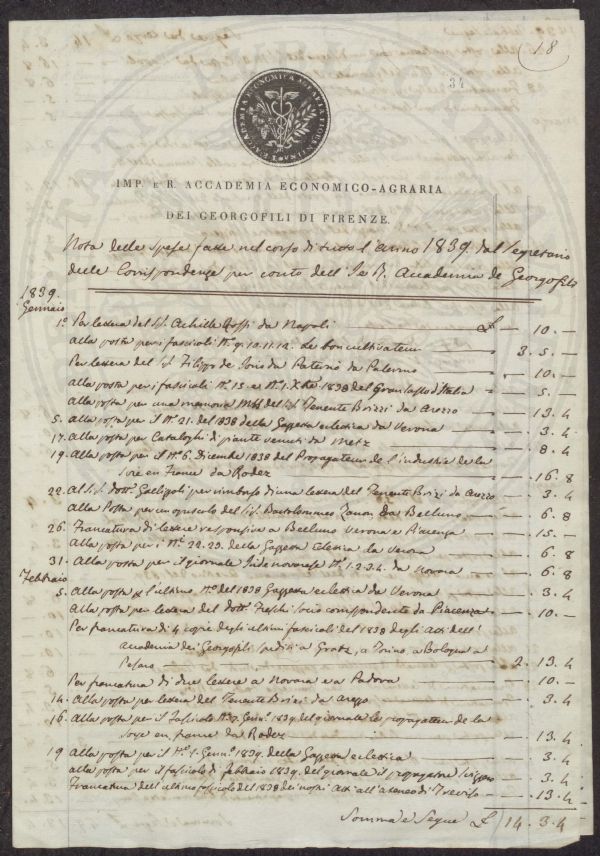 18
34
IMP. E R. ACCADEMIA ECONOMICO-AGRARIA
DEI GEORGOFILI DI FIRENZE.
Nota delle spese fatte nel corso di tutto l'anno 1839. dal Segretario
delle Corrispondenze per conto dell'I. e R. Accademia de Georgofili
1839.
Gennaio
1º. Per lettera del Sig. Achille Rossi da Napoli £ — 10. —
Alla posta per i fascicoli Nº. 9. 10. 11. 12. Le bon cultivateur 3. 5. —
Per lettera del Sig. Filippo da Palermo — 10. —
Alla posta per i fascicoli Nº. 13. e Nº. 1. Xbre 1838 del d'Italia — 5. —
Alla posta per una memoria Mss. del Sig. Tenente Brizzi da Arezzo — 13. 4
5. Alla posta per il Nº. 21. del 1838 della Gazzetta eclettica da Verona — 3. 4
17. Alla posta per Cataloghi di piante venuti da Metz — 8. 4
19. Alla posta per il Nº. 6. Dicembre 1838 del Propagateur de l'industrie de la
Soie en France da Rodez — 16. 8
22. Al Sig. Dott. Gallizioli per rimborso di una lettera del Tenente Brizi da Arezzo — 3. 4
Alla Posta per un opuscolo del Sig. Bartolommeo Zanon da Belluno — 6. 8
26. Francatura di lettere responsive a Belluno Verona e Piacenza — 15. —
Alla posta per i Nº. 22. 23. della Gazzetta Eclettica da Verona — 6. 8
31. Alla posta per il giornale Nº. 1. 2. 3. 4. da Novara — 6. 8
Febbraio
5. Alla posta per l'ultimo Nº. del 1838 Gazzetta eclettica da Verona — 3. 4
Alla posta per lettera del Dott. Freschi Socio corrispondente da Piacenza — 10. —
Per francatura di 4 copie degli ultimi fascicoli del 1838 degli Atti dell'
Accademia dei Georgofili spediti a Gratz, a Torino, a Bologna a
Pesaro 2. 13. 4
Per francatura di due lettere a Novara e a Padova — 10. —
14. Alla posta per lettera del Tenente Brizi da Arezzo — 3. 4
16. Alla posta per il Fascicolo Nº. 7. Genn. 1839. del giornale le propagateur de la
Soye en france da Rodez — 13. 4
19. Alla posta per il Nº. 1. Genn. 1839. della Gazzetta eclettica — 3. 4
Alla posta per il fascicolo di Febbraio 1839. del giornale il propagatore — 3. 4
Francatura dell'ultimo fascicolo del 1838 dei nostri Atti all'Ateneo di Treviso — 13. 4
Somma e Segue £ 14. 3. 4